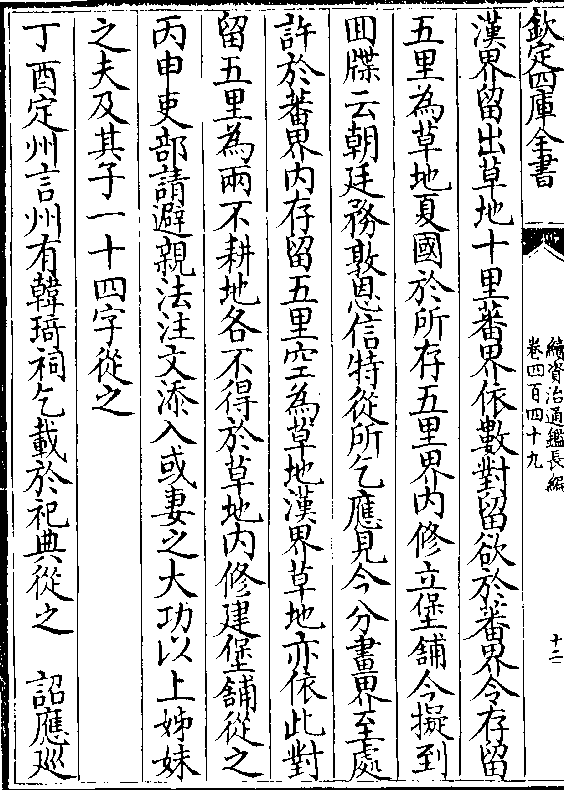 欽定四庫全書
續資治通鑑長編
卷四百四十九
十二
漢界留出草地十里蕃界依數對留欲於蕃界令存留
五里為草地夏國於所存五里界内修立堡舖今擬到
囬牒云朝廷務敦恩信特從所乞應見今分畫界至處
許於蕃界内存留五里空為草地漢界草地亦依此對
留五里為兩不耕地各不得於草地内修建堡舖從之
丙申吏部請避親法注文添入或妻之大功以上姊妹
之夫及其子一十四字從之
丁酉定州言州有韓琦祠乞載於祀典從之　詔應廵